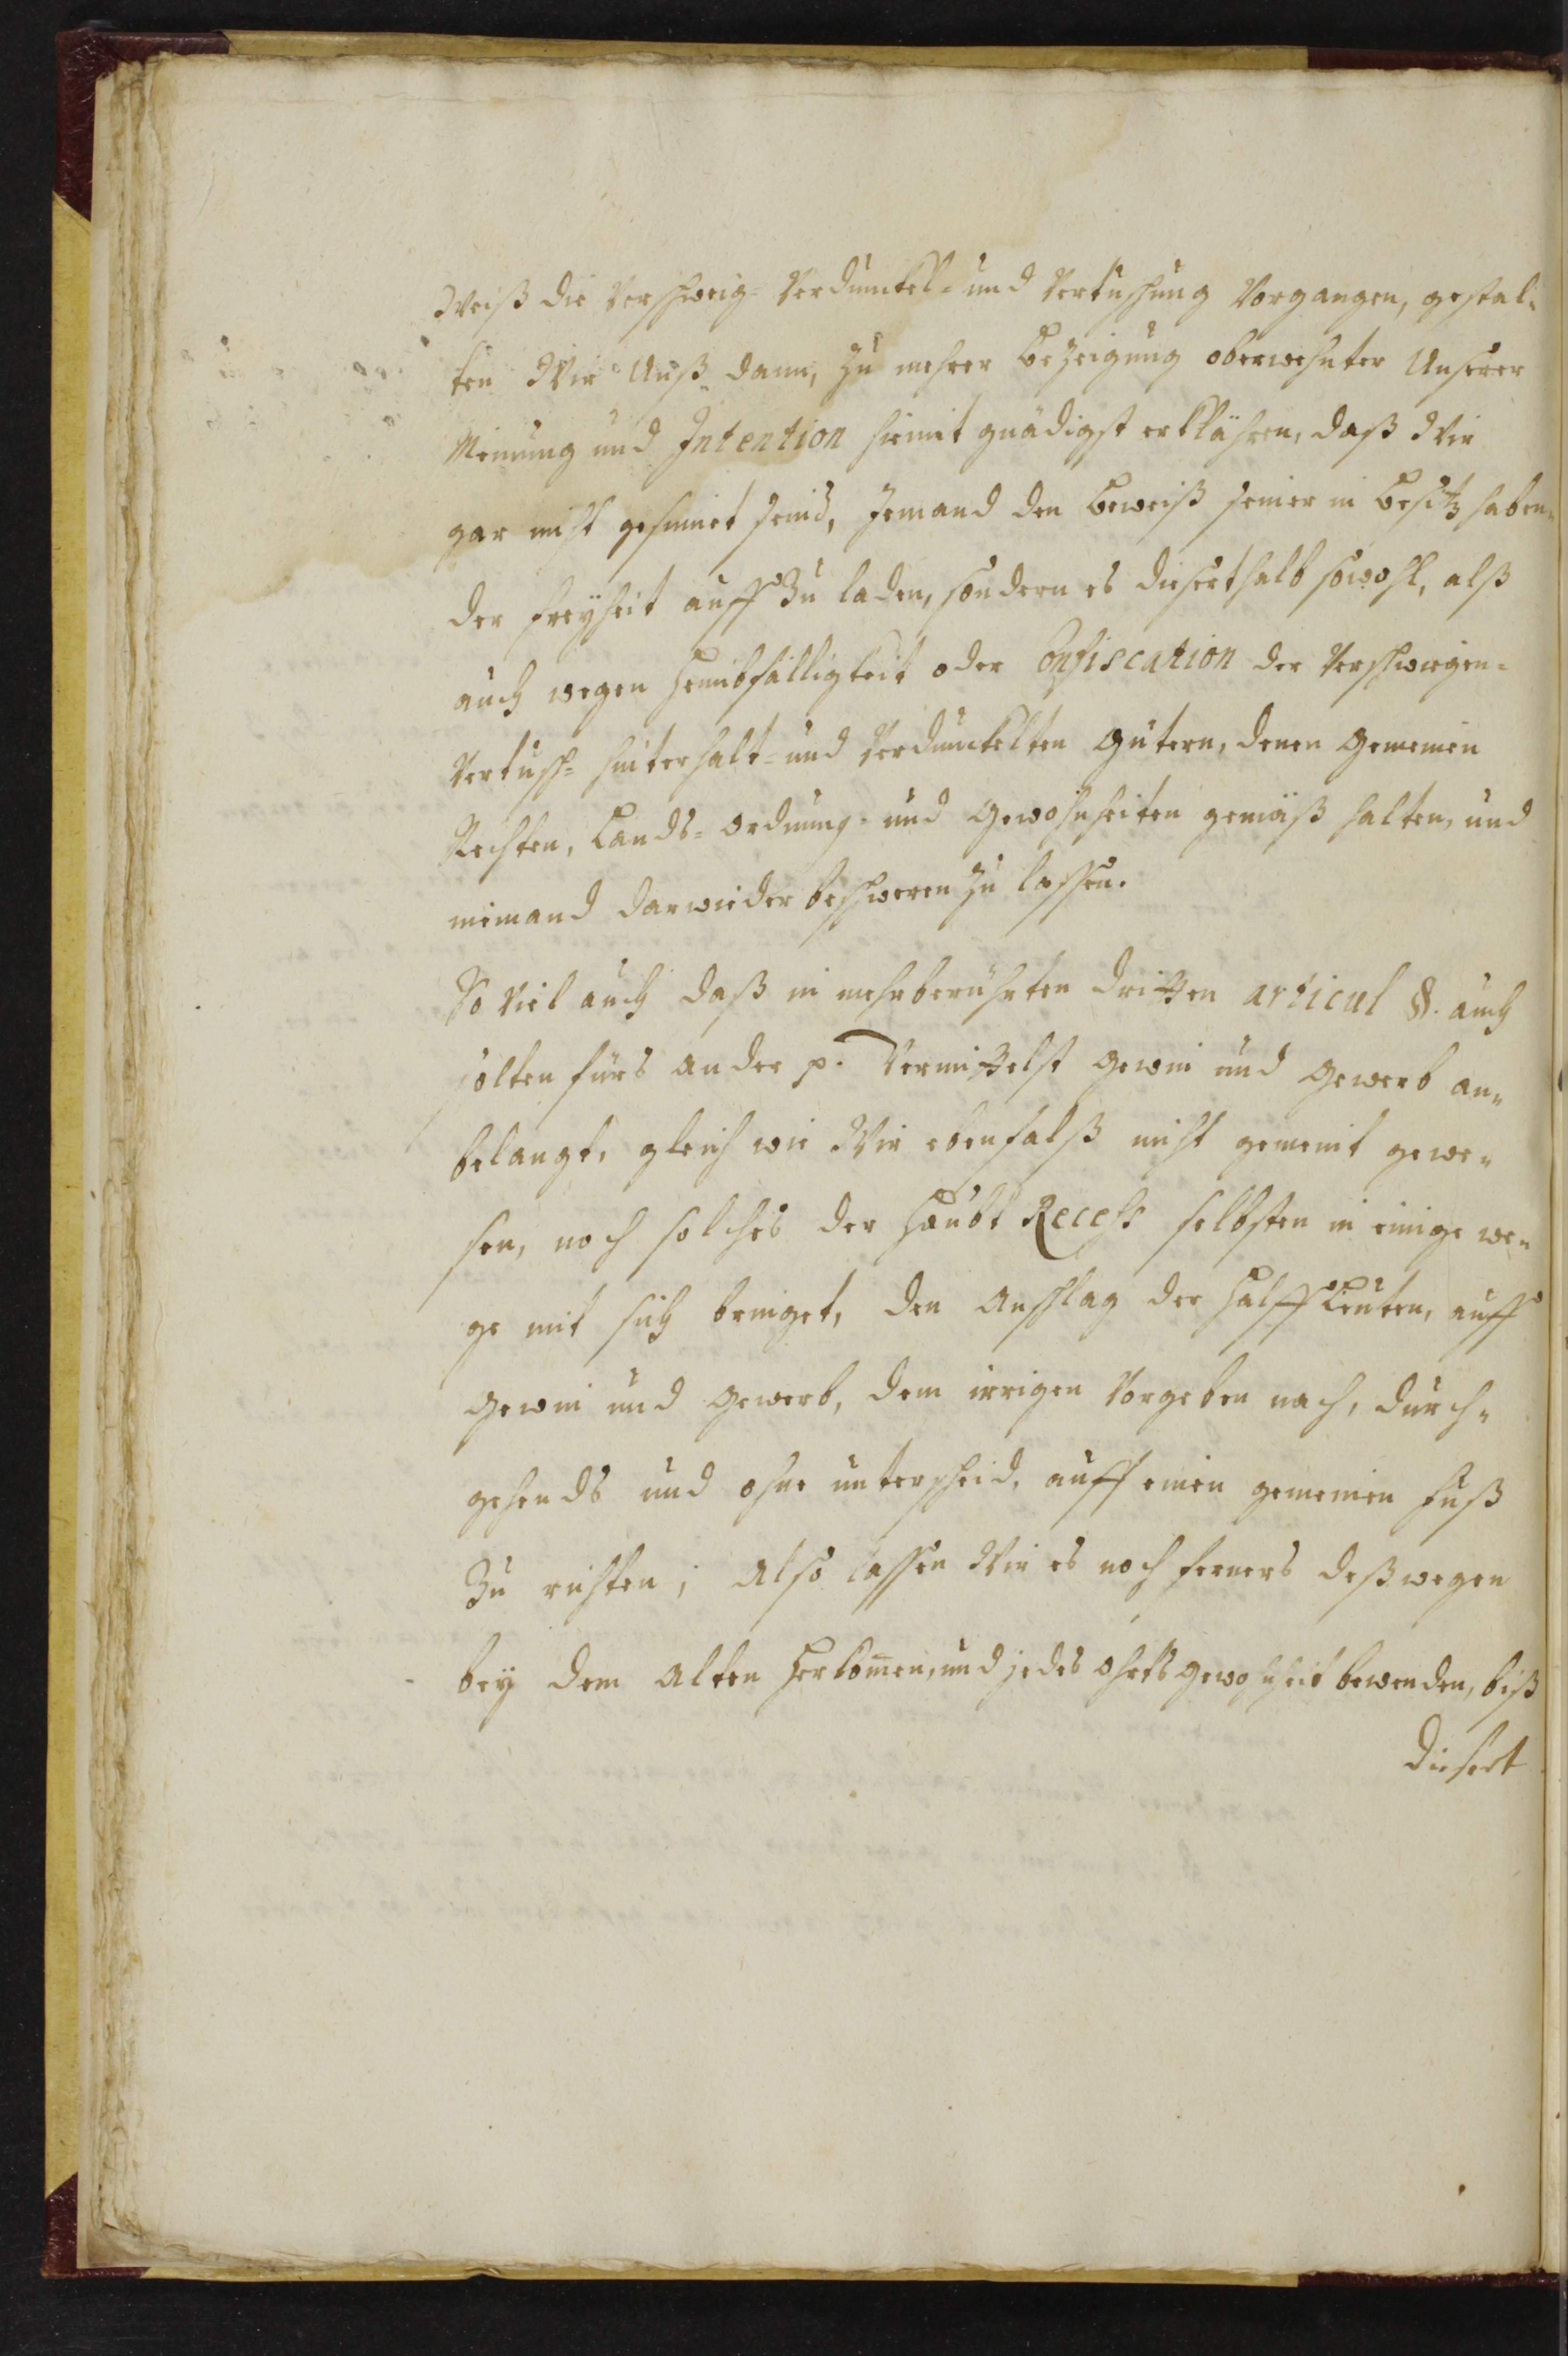 Weiß die Verschweig- Verdunckel- und Vertuschung Vorgangen, gestal-
ten Wir Unß dann, zu mehrer Bezeigung oberwehnter Unserer
Meinung und Intention hiemit gnädigst erklähren, daß Wir
gar nicht gesinnet seind, Jemand den Beweiß seiner in Besitz haben-
der Freyheit auff Zu laden, sondern es dieserthalb sowohl, alß
auch wegen Heimbfälligkeit oder Confiscation der Verschwiegen-
Vertusch- hinterhalt- und Verdunckelten Gütern, denen Gemeinen
Rechten, Lands-Ordnung- und Gewohnheiten gemäß halten, und
niemand darwieder beschweren zu lassen.
So Viel auch daß in mehrberührten dritten articul §. auch
solten fürs ander p. Vermittelst Gewin und Gewerb an-
belangt, gleich wie Wir ebenfalß nicht gemeint gewe-
sen, noch solches der Haubt Recess selbsten in einige we-
ge mit sich bringet, den Anschlag der Halff Leuten, auff
Gewin und Gewerb, dem irrigen Vorgeben nach, durch-
gehends und ohne unterscheid, auff einen gemeinen Fuß
Zu richten; Also lassen Wir es noch ferners deßwegen
bey dem Alten Herkom̄en, und jedes Ohrts gewohnheit bewenden, biß
diesert